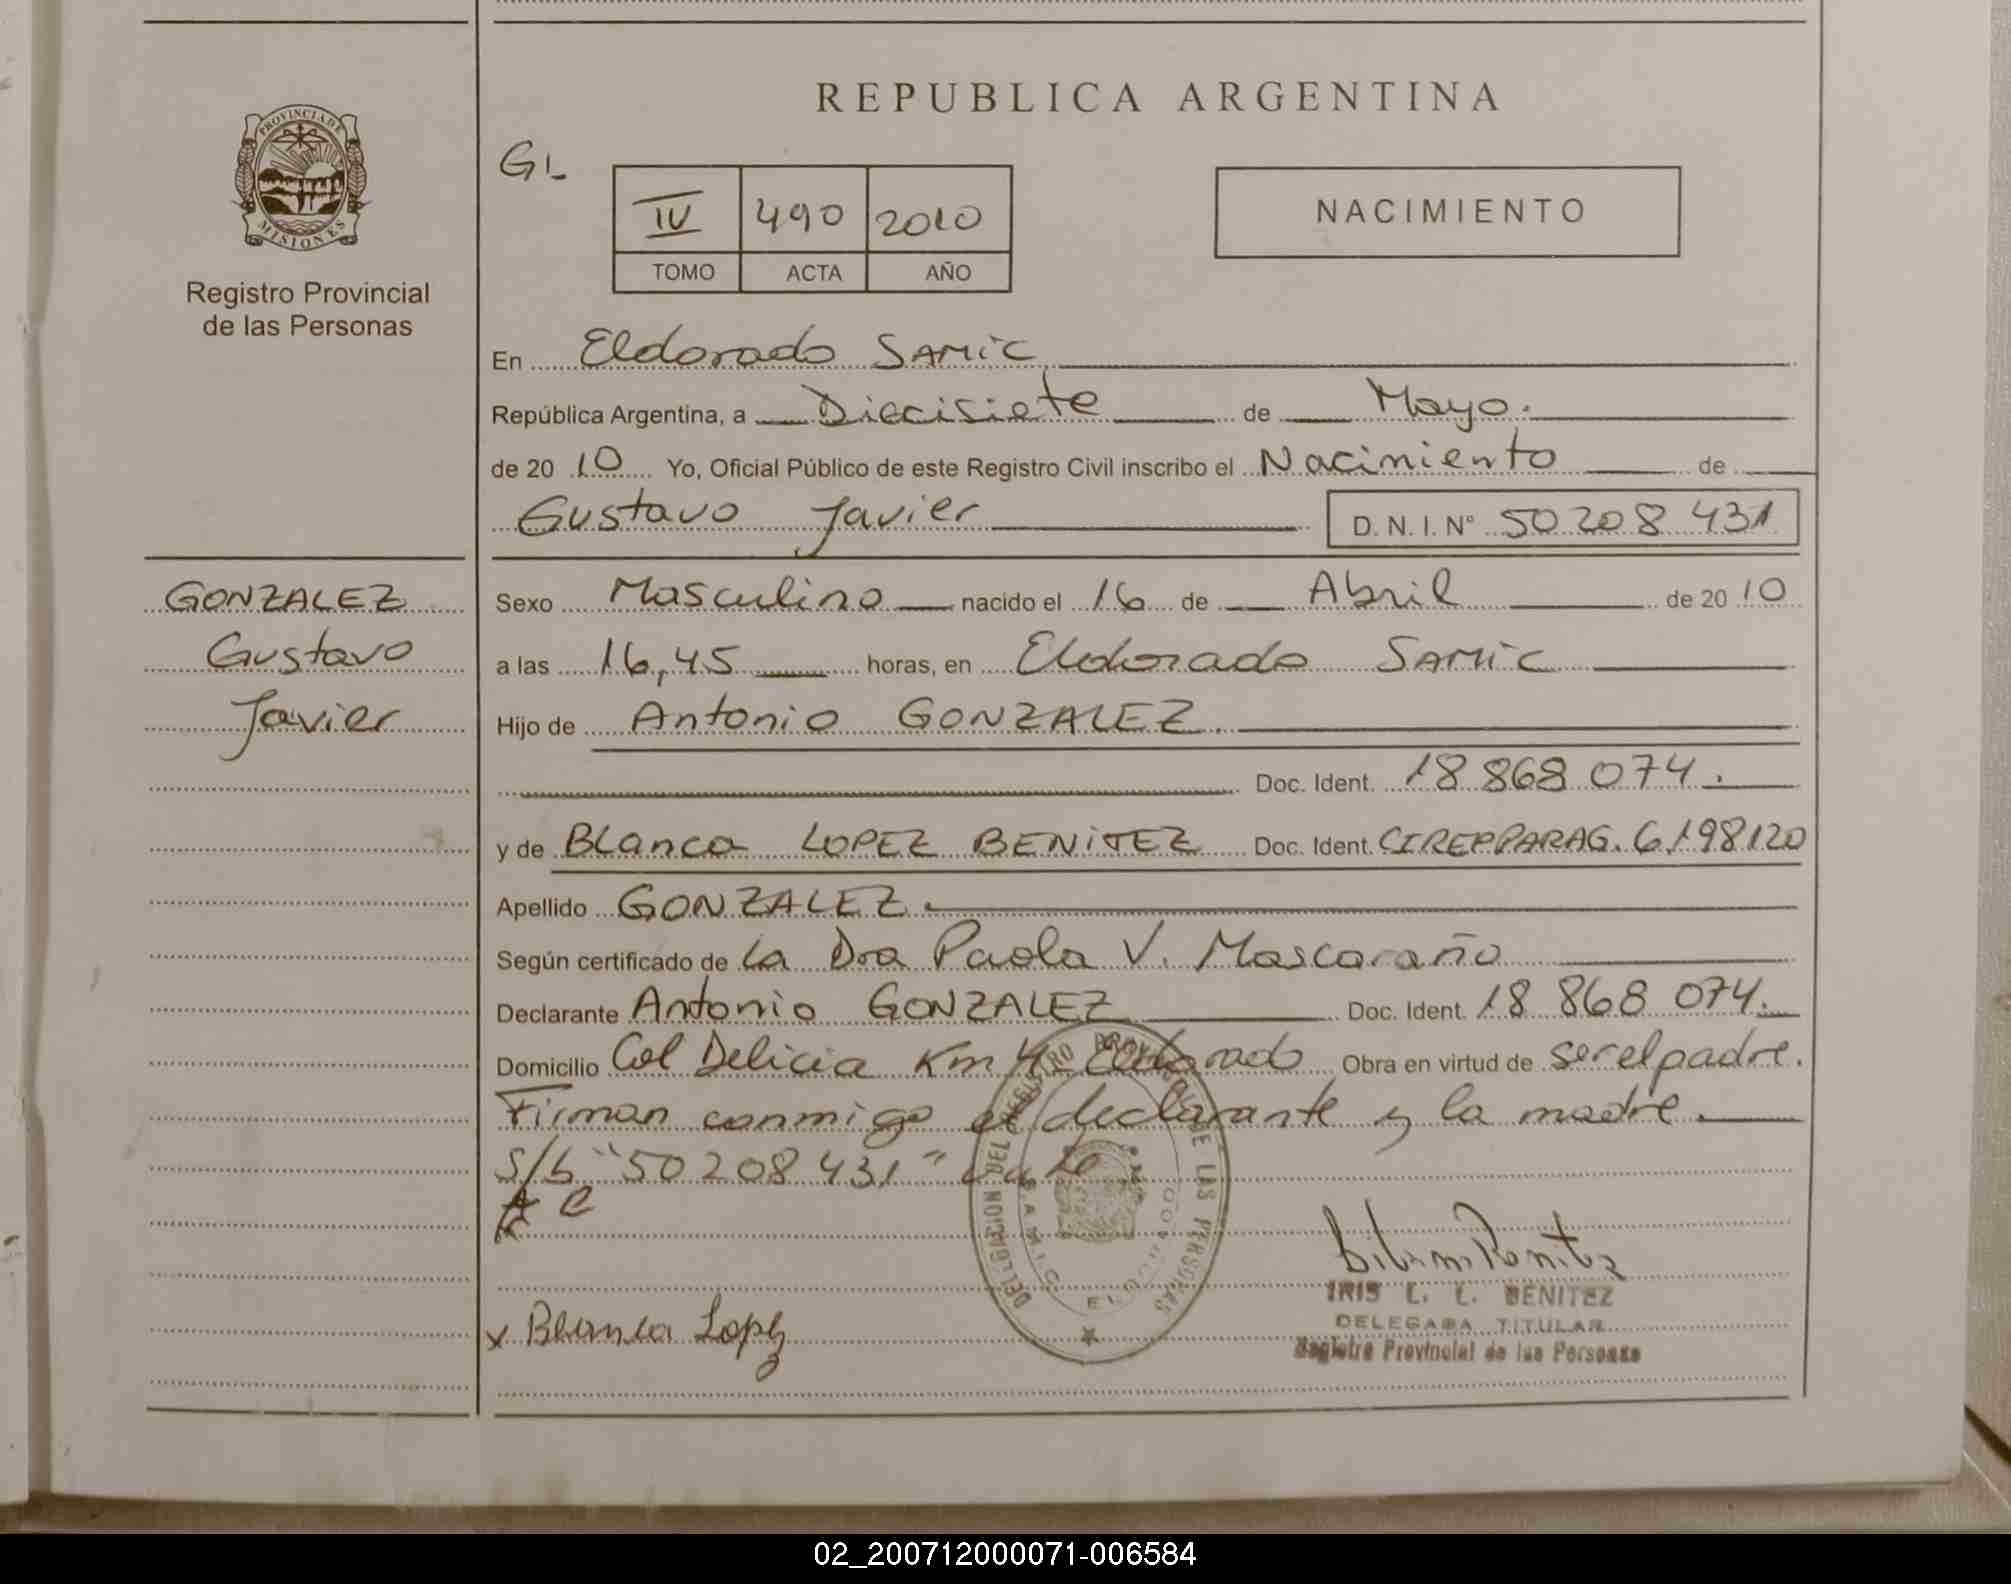 REPUBLICA ARGENTINA
PROVINCIA DE
MISIONES
Registro Provincial
de las Personas
GL
IV 490 2010
TOMO ACTA AÑO
NACIMIENTO
En Eldorado SAMiC
República Argentina, a Diecisiete de Mayo.
de 20 10 Yo, Oficial Público de este Registro Civil inscribo el Nacimiento de
Gustavo Javier D. N. I. N° 50208431
GONZALEZ
Gustavo
Javier
Sexo Masculino nacido el 16 de Abril de 20 10
a las 16,45 horas, en Eldorado SAMiC
Hijo de Antonio GONZALEZ.
Doc. Ident. 18 868 074.
y de BLanca LOPEZ BENiTEZ Doc. Ident. CIREPPARAG. 6198120
Apellido GONZALEZ.
Según certificado de La Dra Paola V. Mascaraño
Declarante Antonio GONZALEZ Doc. Ident. 18 868 074.
Domicilio Col Delicia Km 4 Eldorado Obra en virtud de ser el padre.
Firman conmigo el declarante y la madre.
S/b "50208431" Vale
x Blanca Lopez
DELEGACION DEL REGISTRO PROVINCIAL DE LAS PERSONAS
SAMIC ELDORADO
IRIS L. L. BENITEZ
DELEGADA TITULAR
Registro Provincial de las Personas
02_200712000071-006584